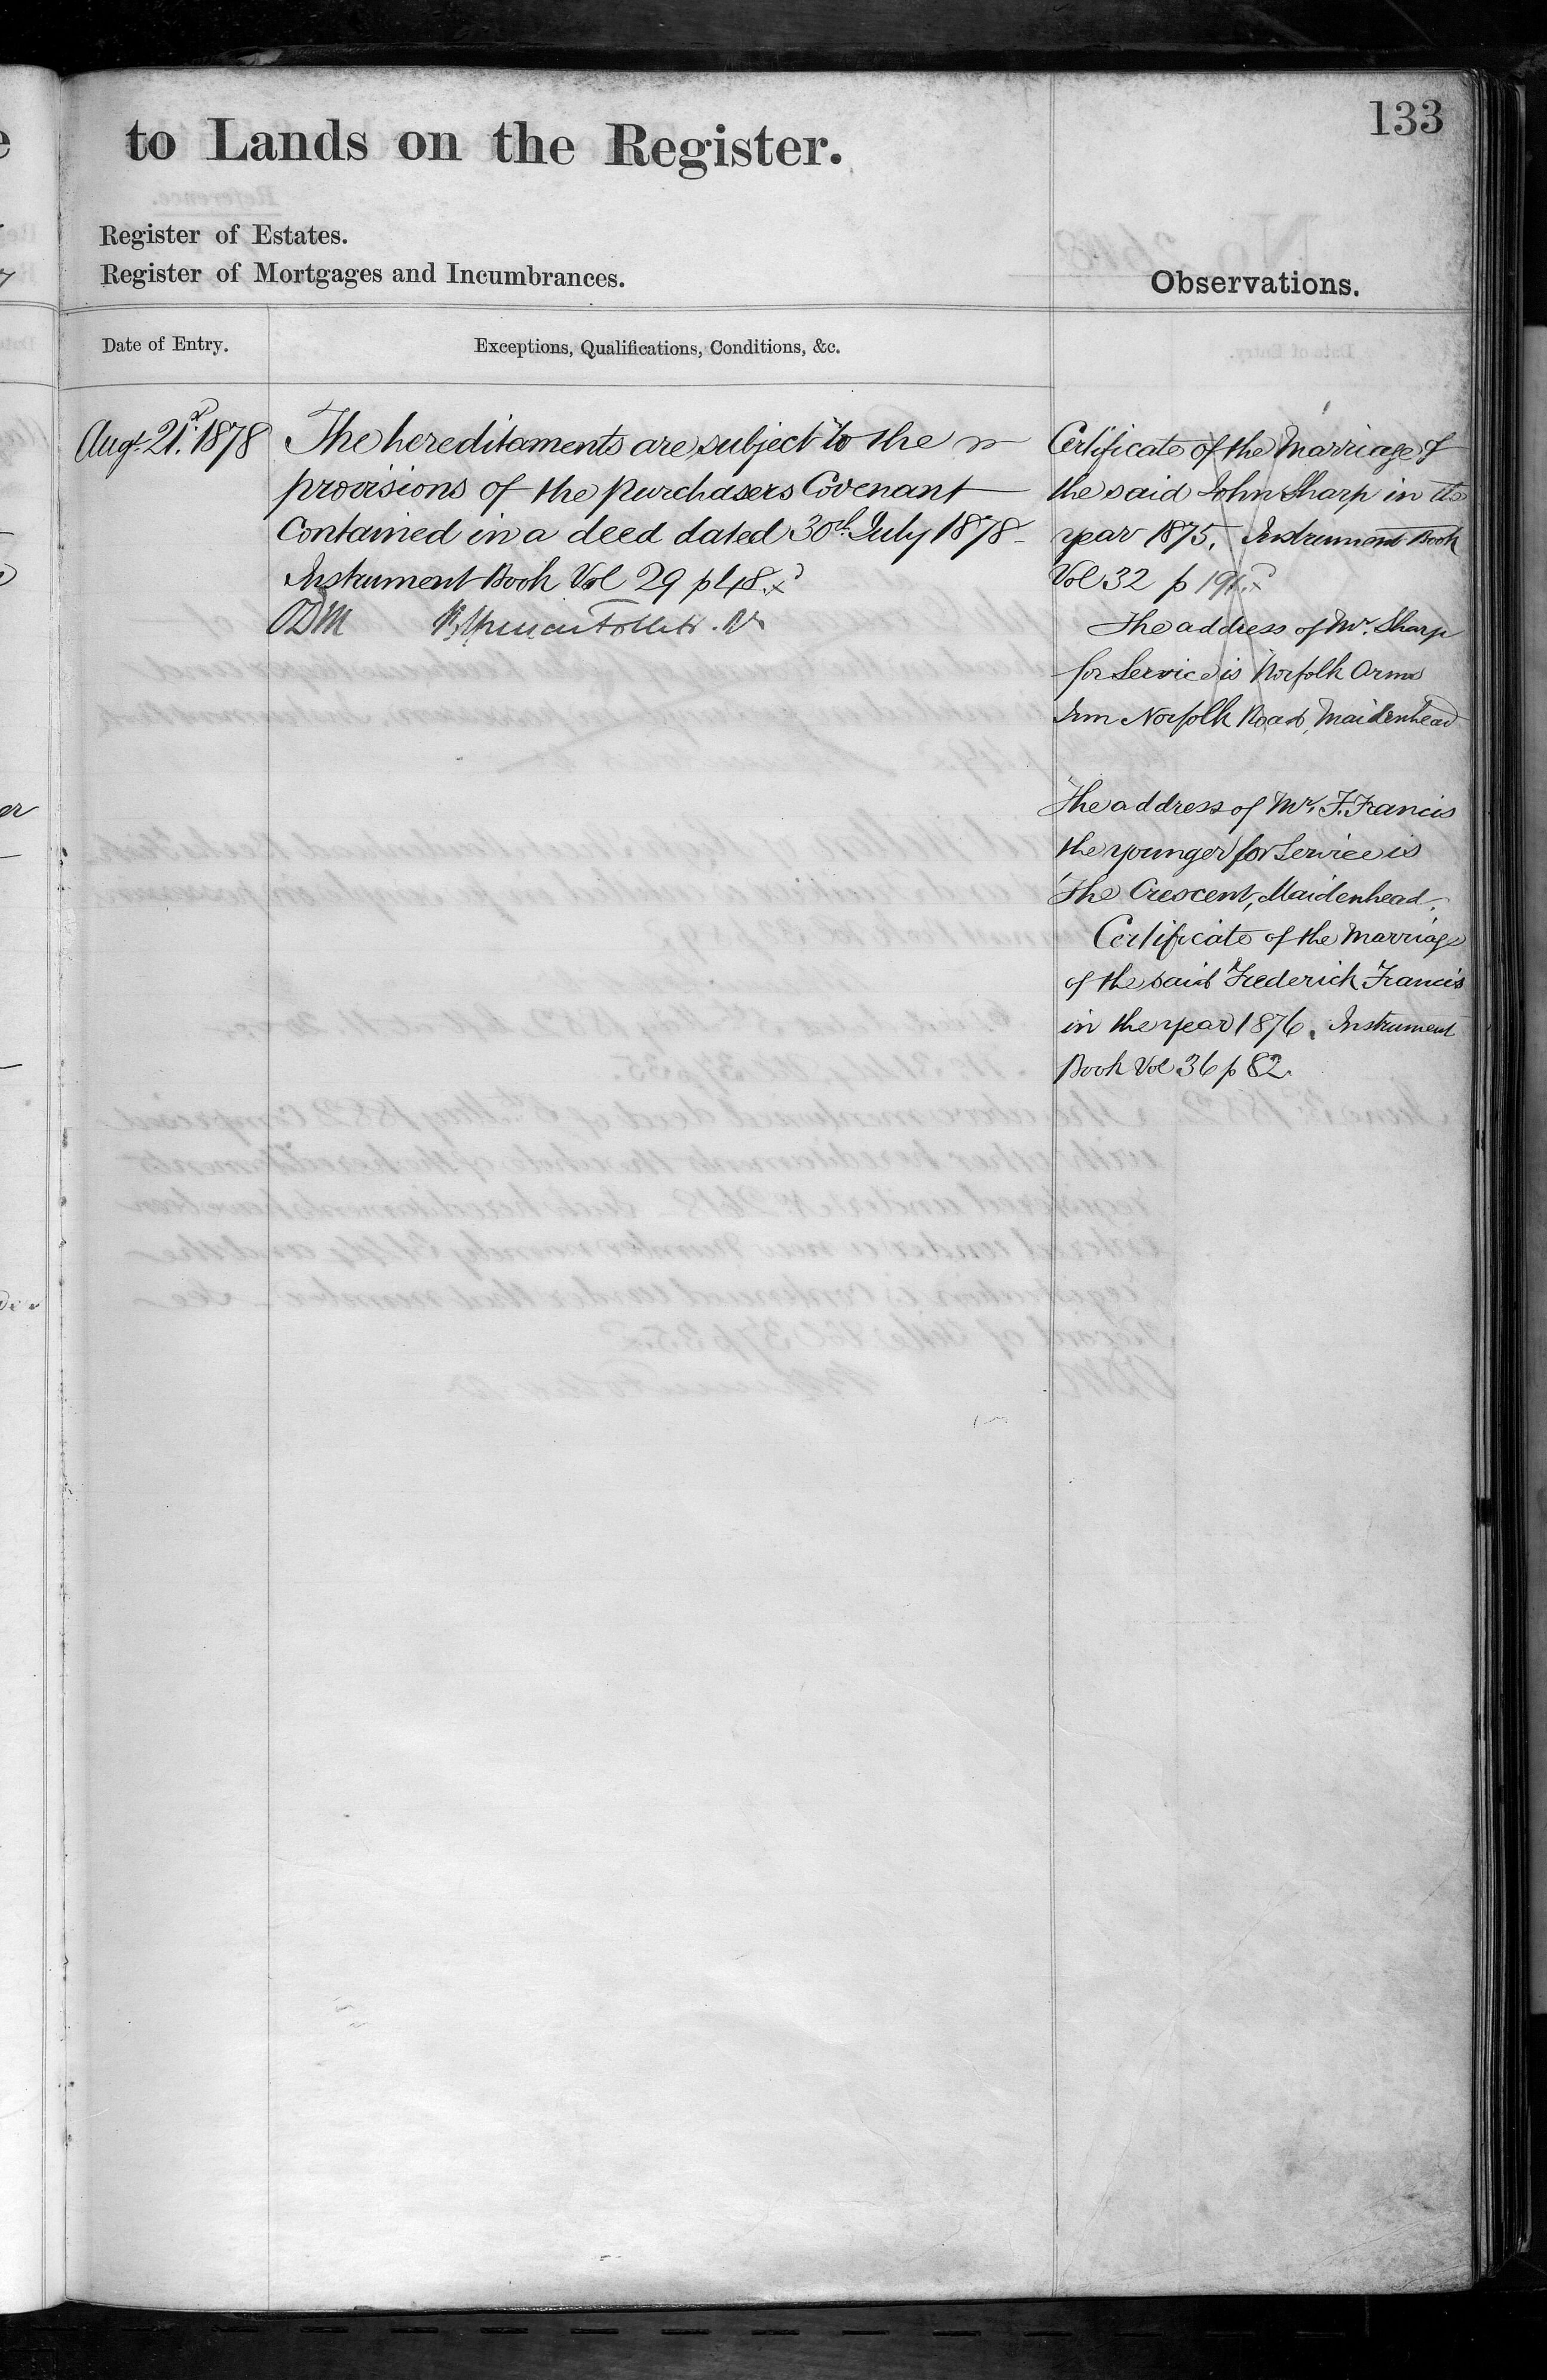 133
to Lands on the Register.
Register of Estates.
Register of Mortgages and Incumbrances.
Observations.
Date of Entry.
Exceptions, Qualifications, Conditions, &c.
Augt. 21st. 1878
The hereditaments are subject to the
provisions of the purchasers Covenant
Contained in a deed dated 30th July 1878
Instrument Book Vol 29 p 48.
ODM
Certificate of the Marriage of
the said John Sharp in the
year 1875. Instrument Book
Vol 32 p 191.
The address of Mr. Sharp
for Service is Norfolk Arms
Inn Norfolk Road, Maidenhead
The address of Mr. F. Francis
the younger for Service is
The Crescent, Maidenhead.
Certificate of the Marriage
of the said Frederick Francis
in the year 1876. Instrument
Book Vol 36 p 82.